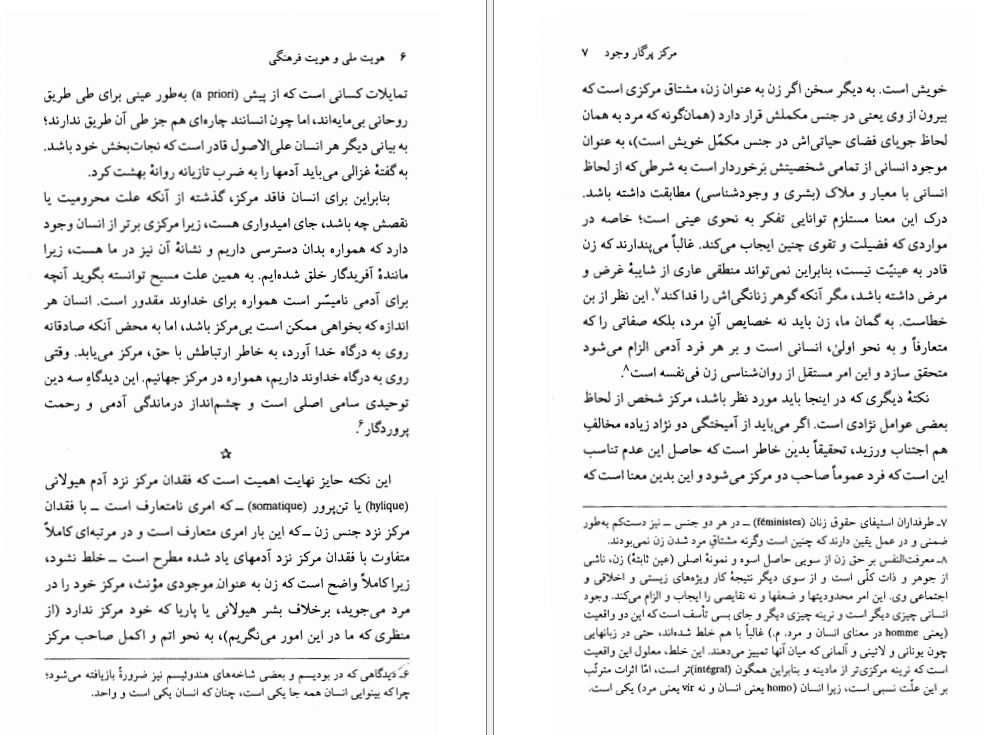 ۶   هویت ملی و هویت فرهنگی
تمایلات کسانی است که از پیش (a priori) به‌طور عینی برای طی طریق
روحانی بی‌مایه‌اند، اما چون انسانند چاره‌ای هم جز طی آن طریق ندارند؛
به بیانی دیگر هر انسان علی‌الاصول قادر است که نجات‌بخش خود باشد.
به گفتهٔ غزالی می‌باید آدمها را به ضرب تازیانه روانهٔ بهشت کرد.
بنابراین برای انسان فاقد مرکز، گذشته از آنکه علت محرومیت یا
نقصش چه باشد، جای امیدواری هست، زیرا مرکزی برتر از انسان وجود
دارد که همواره بدان دسترسی داریم و نشانهٔ آن نیز در ما هست، زیرا
مانندهٔ آفریدگار خلق شده‌ایم. به همین علت مسیح توانسته بگوید آنچه
برای آدمی نامیسّر است همواره برای خداوند مقدور است. انسان هر
اندازه که بخواهی ممکن است بی‌مرکز باشد، اما به محض آنکه صادقانه
روی به درگاه خدا آورد، به خاطر ارتباطش با حق، مرکز می‌یابد. وقتی
روی به درگاه خداوند داریم، همواره در مرکز جهانیم. این دیدگاهِ سه دین
توحیدی سامی اصلی است و چشم‌انداز درماندگی آدمی و رحمت
پروردگار۶.
☆
این نکته حایز نهایت اهمیت است که فقدان مرکز نزد آدم هیولانی
(hylique) یا تن‌پرور (somatique) ــ که امری نامتعارف است ــ با فقدان
مرکز نزد جنس زن ــ که این بار امری متعارف است و در مرتبه‌ای کاملاً
متفاوت با فقدان مرکز نزد آدمهای یاد شده مطرح است ــ خلط نشود،
زیرا کاملاً واضح است که زن به عنوان موجودی مؤنث، مرکز خود را در
مرد می‌جوید، برخلاف بشر هیولانی یا پاریا که خود مرکز ندارد (از
منظری که ما در این امور می‌نگریم)، به نحو اتم و اکمل صاحب مرکز
۶ـ دیدگاهی که در بودیسم و بعضی شاخه‌های هندوئیسم نیز ضرورةً بازیافته می‌شود؛
چرا که بینوایی انسان همه جا یکی است، چنان که انسان یکی است و واحد.
مرکز پرگار وجود   ۷
خویش است. به دیگر سخن اگر زن به عنوان زن، مشتاق مرکزی است که
بیرون از وی یعنی در جنس مکملش قرار دارد (همان‌گونه که مرد به همان
لحاظ جویای فضای حیاتی‌اش در جنس مکمّل خویش است)، به عنوان
موجود انسانی از تمامی شخصیتش بَرخوردار است به شرطی که از لحاظ
انسانی با معیار و ملاک (بشری و وجودشناسی) مطابقت داشته باشد.
درک این معنا مستلزم توانایی تفکر به نحوی عینی است؛ خاصه در
مواردی که فضیلت و تقوی چنین ایجاب می‌کند. غالباً می‌پندارند که زن
قادر به عینیّت نیست، بنابراین نمی‌تواند منطقی عاری از شایبهٔ غرض و
مرض داشته باشد، مگر آنکه گوهر زنانگی‌اش را فدا کند۷. این نظر از بن
خطاست. به گمان ما، زن باید نه خصایص آنِ مرد، بلکه صفاتی را که
متعارفاً و به نحو اولیٰ، انسانی است و بر هر فرد آدمی الزام می‌شود
متحقق سازد و این امر مستقل از روان‌شناسی زن فی‌نفسه است۸.
نکتهٔ دیگری که در اینجا باید مورد نظر باشد، مرکز شخص از لحاظ
بعضی عوامل نژادی است. اگر می‌باید از آمیختگی دو نژاد زیاده مخالفِ
هم اجتناب ورزید، تحقیقاً بدین خاطر است که حاصل این عدم تناسب
این است که فرد عموماً صاحب دو مرکز می‌شود و این بدین معنا است که
۷ـ طرفداران استیفای حقوق زنان (féministes) ــ در هر دو جنس ــ نیز دست‌کم به‌طور
ضمنی و در عمل یقین دارند که چنین است وگرنه مشتاقِ مرد شدن زن نمی‌بودند.
۸ـ معرفت‌النفس بر حق زن از سویی حاصل اسوه و نمونهٔ اصلی (عین ثابتهٔ) زن، ناشی
از جوهر و ذات کلّی است و از سوی دیگر نتیجهٔ کار ویژه‌های زیستی و اخلاقی و
اجتماعی وی. این امر محدودیتها و ضعفها و نه نقایصی را ایجاب و الزام می‌کند. وجود
انسانی چیزی دیگر است و نرینه چیزی دیگر و جای بسی تأسف است که این دو واقعیت
(یعنی homme در معنای انسان و مرد. م.) غالباً با هم خلط شده‌اند، حتی در زبانهایی
چون یونانی و لاتینی و آلمانی که میان آنها تمییز می‌دهند. این خلط، معلول این واقعیت
است که نرینه مرکزی‌تر از مادینه و بنابراین همگون (intégral)تر است، امّا اثرات مترتّب
بر این علّت نسبی است، زیرا انسان (homo یعنی انسان و نه vir یعنی مرد) یکی است.